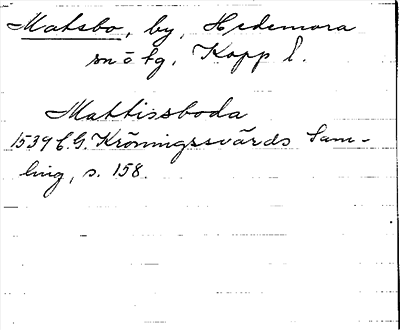 Matsbo, by, Hedemora
sn o tg, Kopp l.
Mattissboda
1539 C.G. Kröningssvärds Sam-
ling, s. 158.